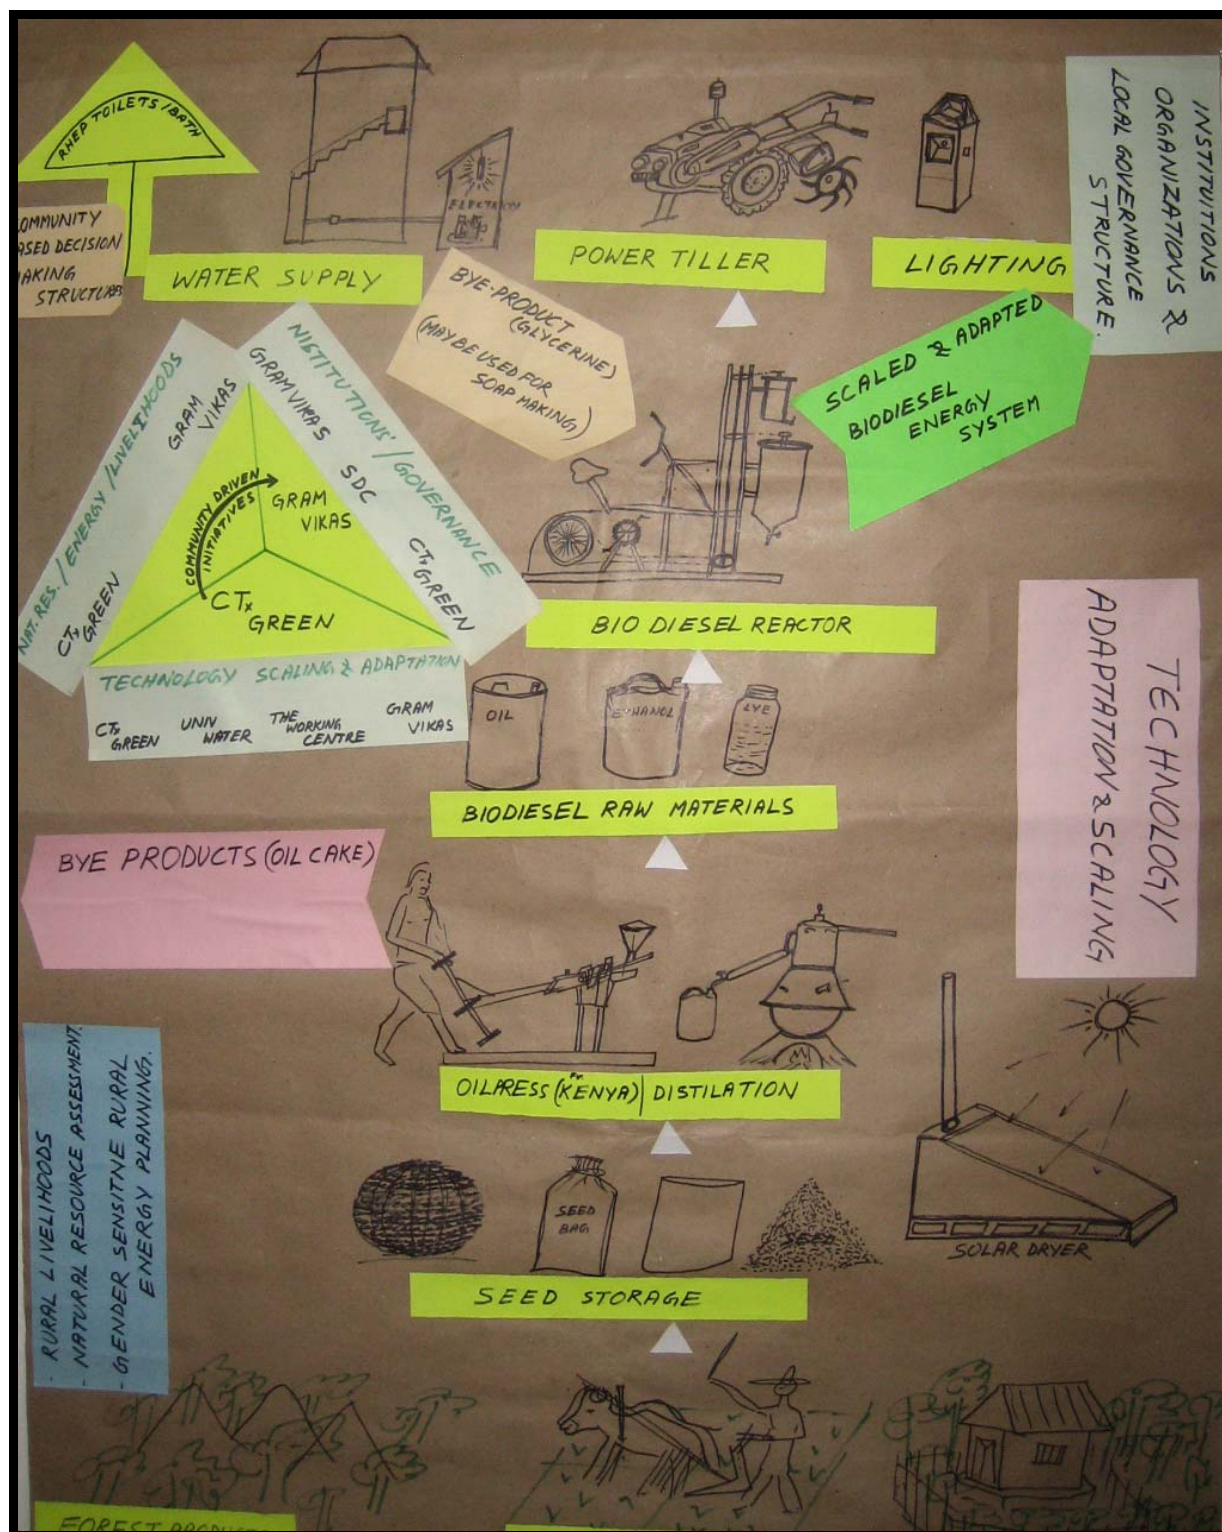 RHEP TOILETS/BATH
OMMUNITY
ASED DECISION
AKING
STRUCTURES
WATER SUPPLY
ELECTRICITY
POWER TILLER
LIGHTING
INSTITUITIONS
ORGANIZATIONS &
LOCAL GOVERNANCE
STRUCTURE
BYE-PRODUCT
(GLYCERINE)
(MAYBE USED FOR
SOAP MAKING)
SCALED & ADAPTED
BIODIESEL
ENERGY
SYSTEM
NAT. RES. / ENERGY / LIVELIHOODS
GRAM
VIKAS
CTx
GREEN
NISTITUTIONS' / GOVERNANCE
GRAM VIKAS
SDC
CTx
GREEN
COMMUNITY DRIVEN
INITIATIVES
GRAM
VIKAS
CTx
GREEN
TECHNOLOGY SCALING & ADAPTATION
CTx
GREEN
UNIV
WATER
THE
WORKING
CENTRE
GRAM
VIKAS
BIO DIESEL REACTOR
OIL
ETHANOL
LYE
BIODIESEL RAW MATERIALS
TECHNOLOGY
ADAPTATION & SCALING
BYE PRODUCTS (OIL CAKE)
OILPRESS (KENYA) | DISTILATION
- RURAL LIVELIHOODS
- NATURAL RESOURCE ASSESSMENT.
- GENDER SENSITNE RURAL
ENERGY PLANNING.
SEED
BAG
SEED
SOLAR DRYER
SEED STORAGE
FOREST PRODUCT